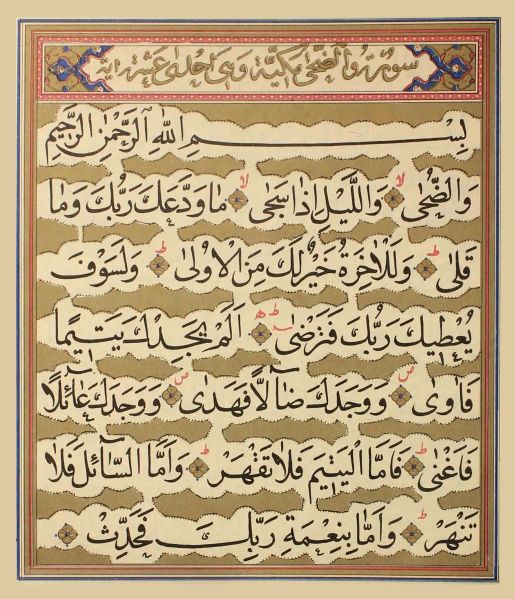 سورة والضحى مكية وهي احدى عشرة اية
بِسْمِ اللهِ الرَّحْمٰنِ الرَّحِيمِ
وَالضُّحٰى لا وَاللَّيْلِ اِذَا سَجٰى لا مَا وَدَّعَكَ رَبُّكَ وَمَا
قَلٰى ط وَلَلْاٰخِرَةُ خَيْرٌ لَكَ مِنَ الْاُولٰى ط وَلَسَوْفَ
يُعْطِيكَ رَبُّكَ فَتَرْضٰى ط اَلَمْ يَجِدْكَ يَتِيمًا
فَاٰوٰى ص وَوَجَدَكَ ضَٓالًّا فَهَدٰى ص وَوَجَدَكَ عَٓائِلًا
فَاَغْنٰى ط فَاَمَّا الْيَتِيمَ فَلَا تَقْهَرْ ط وَاَمَّا السَّٓائِلَ فَلَا
تَنْهَرْ ط وَاَمَّا بِنِعْمَةِ رَبِّكَ فَحَدِّثْ